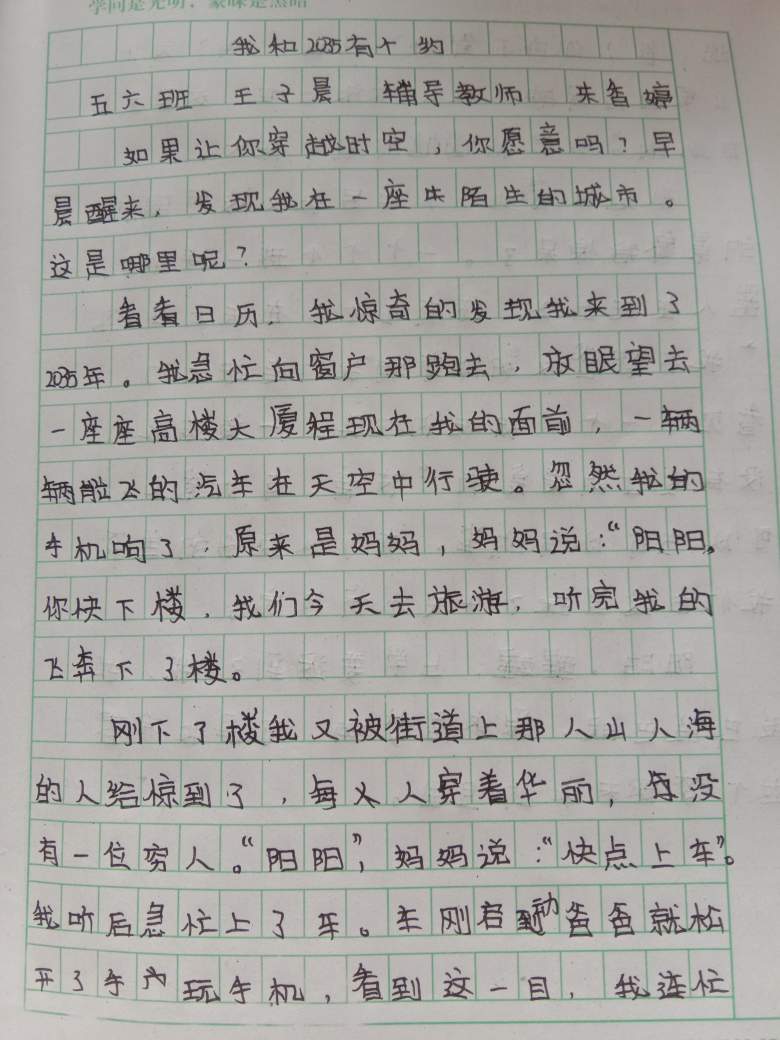 学问是光明，蒙昧是黑暗
我和2035有个约
五六班 王子晨 辅导教师 朱香婷
如果让你穿越时空，你愿意吗？早
晨醒来，发现我在一座陌生的城市。
这是哪里呢？
看看日历，我惊奇的发现我来到了
2035年。我急忙向窗户那跑去，放眼望去
一座座高楼大厦程现在我的面前，一辆
辆能飞的汽车在天空中行驶。忽然我的
手机响了，原来是妈妈，妈妈说：“阳阳，
你快下楼，我们今天去旅游，听完我的
飞奔下了楼。
刚下了楼我又被街道上那人山人海
的人给惊到了，每人穿着华丽，没
有一位穷人。“阳阳”，妈妈说：“快点上车”。
我听后急忙上了车。车刚启动爸爸就松
开了手玩手机，看到这一目，我连忙